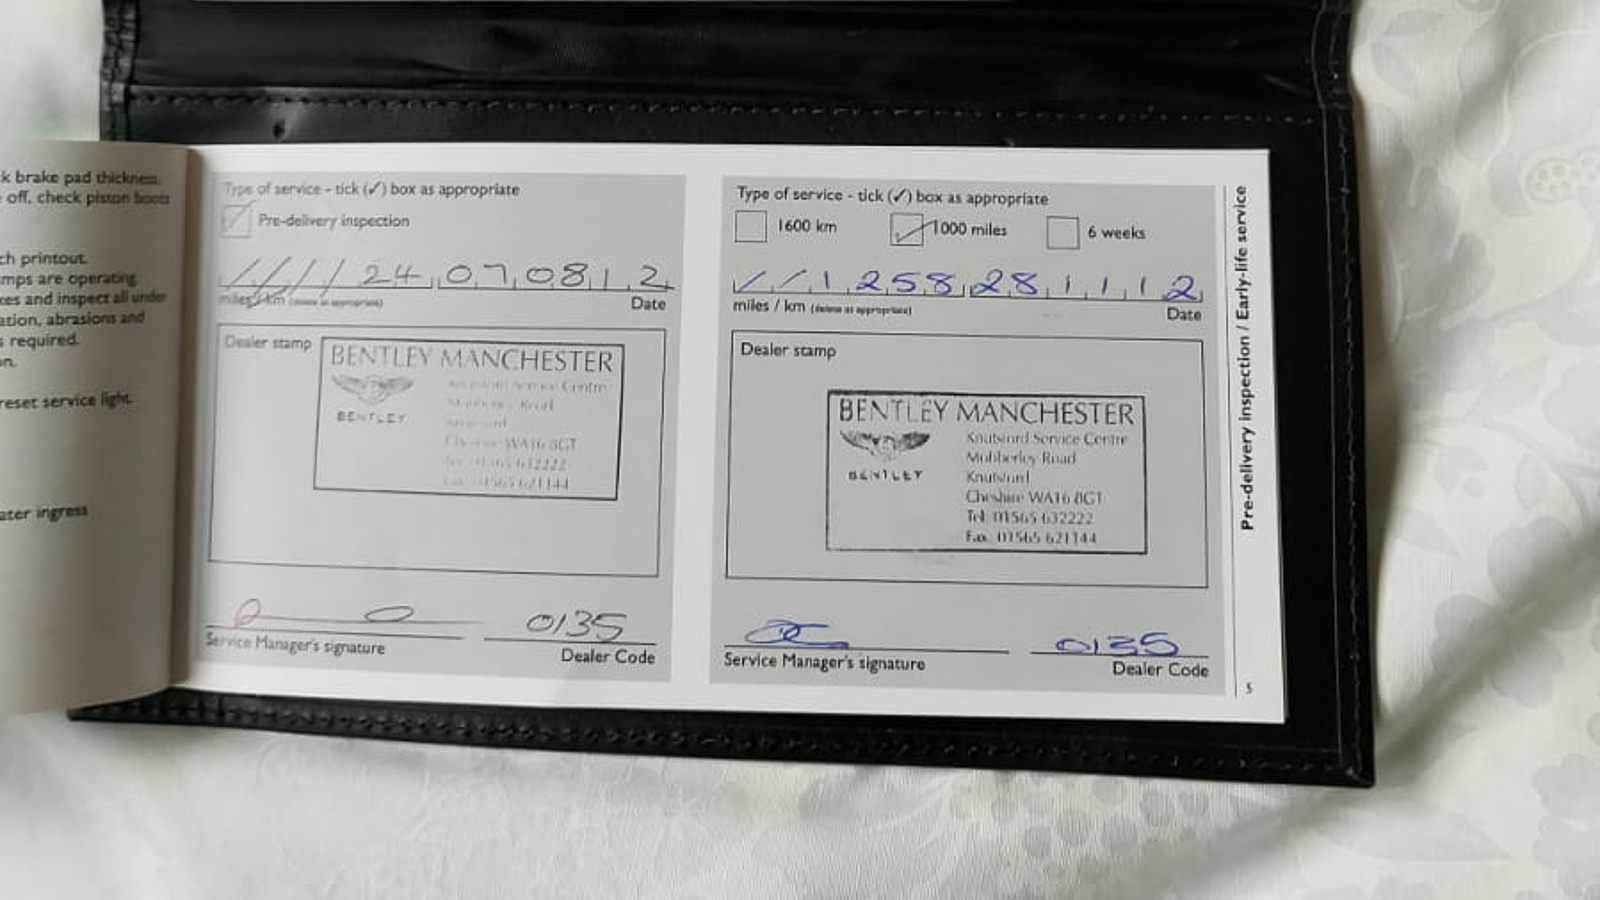 k brake pad thickness.
off, check piston boots
ch printout.
mps are operating.
kes and inspect all under
ation, abrasions and
s required.
on.
reset service light.
ater ingress
Type of service - tick (✓) box as appropriate
Pre-delivery inspection
////24 070812
miles / km (delete as appropriate) Date
Dealer stamp
BENTLEY MANCHESTER
Service Centre
Road
BENTLEY
Cheshire WA16 8GT
01565 632222
01565 621144
0135
Service Manager's signature Dealer Code
Type of service - tick (✓) box as appropriate
1600 km 1000 miles 6 weeks
//1258 281112
miles / km (delete as appropriate) Date
Dealer stamp
BENTLEY MANCHESTER
Knutsford Service Centre
Mobberley Road
BENTLEY Knutsford
Cheshire WA16 8GT
Tel: 01565 632222
Fax: 01565 621144
0135
Service Manager's signature Dealer Code
Pre-delivery inspection / Early-life service
5